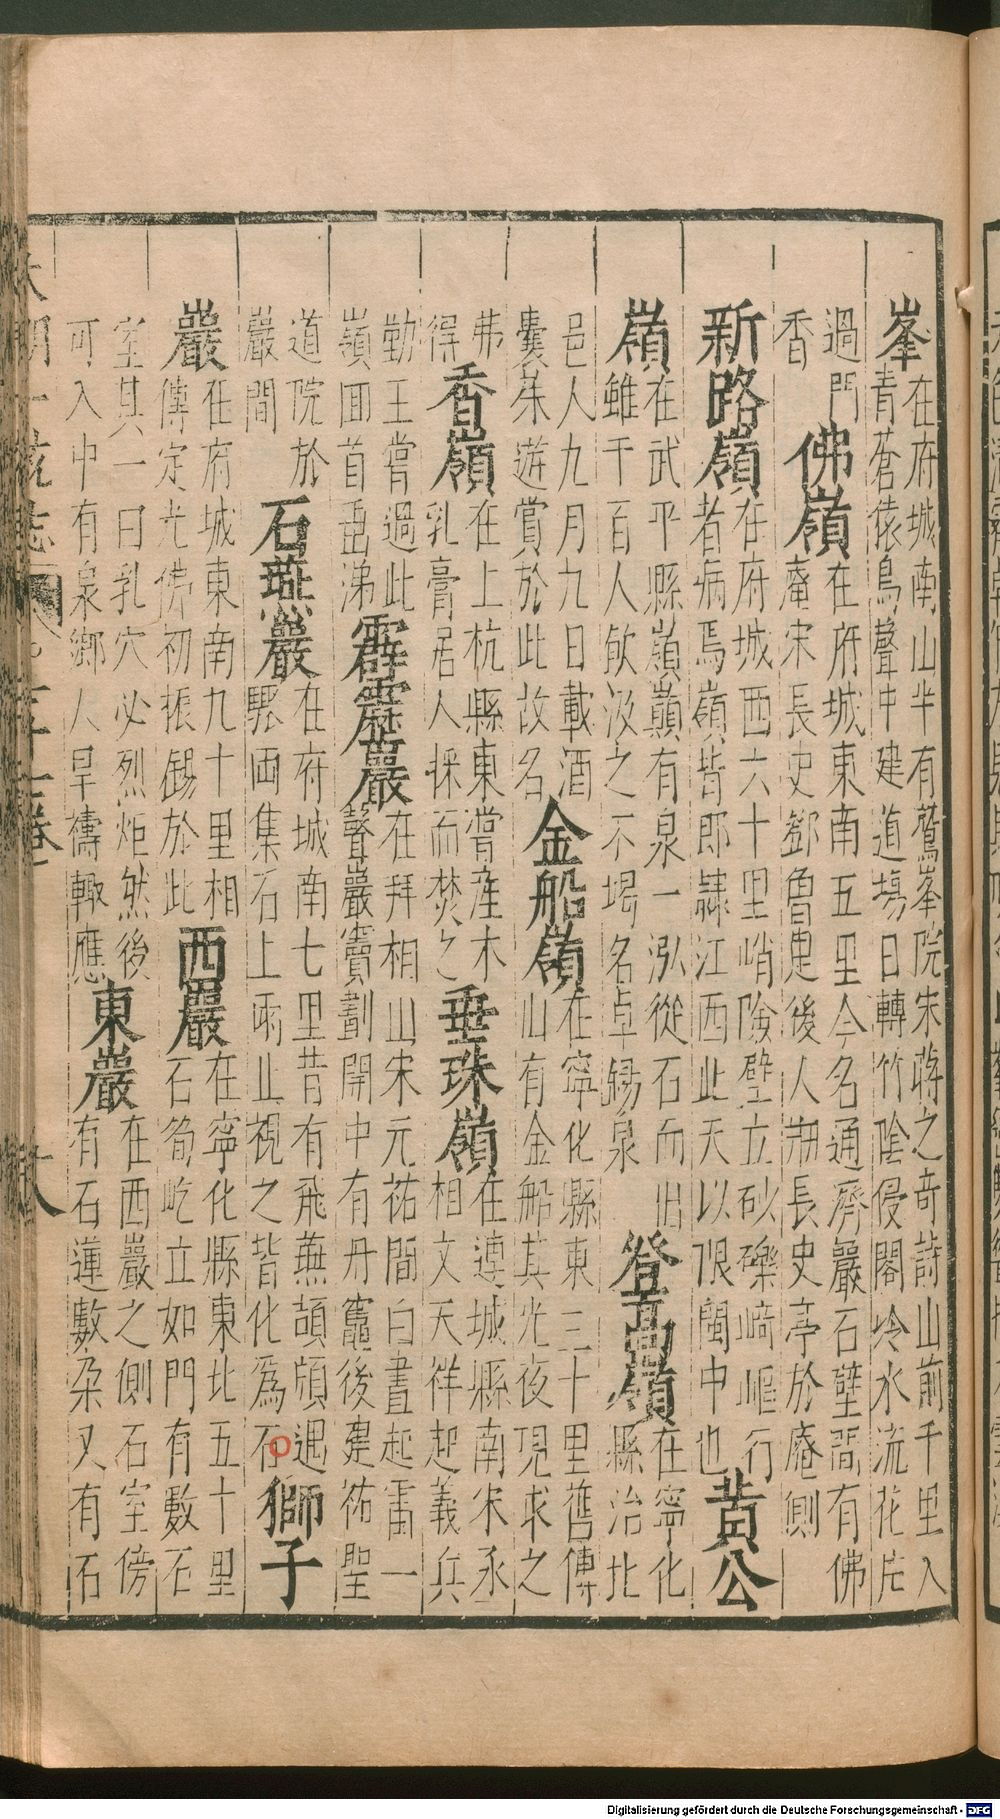 峯在府城南山半有鷲峯院宋蔣之奇詩山前千里入
青蒼猿鳥聲中建道塲日轉竹陰侵閣冷水流花片
過門
香
佛嶺在府城東南五里今名通濟巖石壁間有佛
庵宋長史鄧魯吏後人刱長史亭於庵側
新路嶺在府城西六十里峭險壁立砂礫崎嶇行
者病焉嶺背即隸江西此天以限閩中也
黃公
嶺在武平縣嶺巔有泉一泓從石而出
雖千百人飲汲之不竭名卓錫泉
登高嶺在寧化
縣治北
邑人九月九日載酒
囊茱遊賞於此故名
金船嶺在寧化縣東三十里舊傳
山有金船其光夜現求之
弗
得
香嶺在上杭縣東嘗産木
乳膏居人採而焚之
垂珠嶺在連城縣南宋丞
相文天祥起義兵
勤王嘗過此
嶺回首垂涕
霹靂巖在拜相山宋元祐間白晝起雷一
聲巖竇劃開中有丹竈後建祐聖
道院於
巖間
石燕巖在府城南七里昔有飛燕頡頏遇
驟雨集石上雨止視之皆化爲石
獅子
巖在府城東南九十里相
傳定光佛初振錫於此
西巖在寧化縣東北五十里
石筍屹立如門有數石
室其一曰乳穴必烈炬然後
可入中有泉鄉人旱禱輙應
東巖在西巖之側石室傍
有石蓮數朶又有石
大明一統志 十八
Digitalisierung gefördert durch die Deutsche Forschungsgemeinschaft - DFG